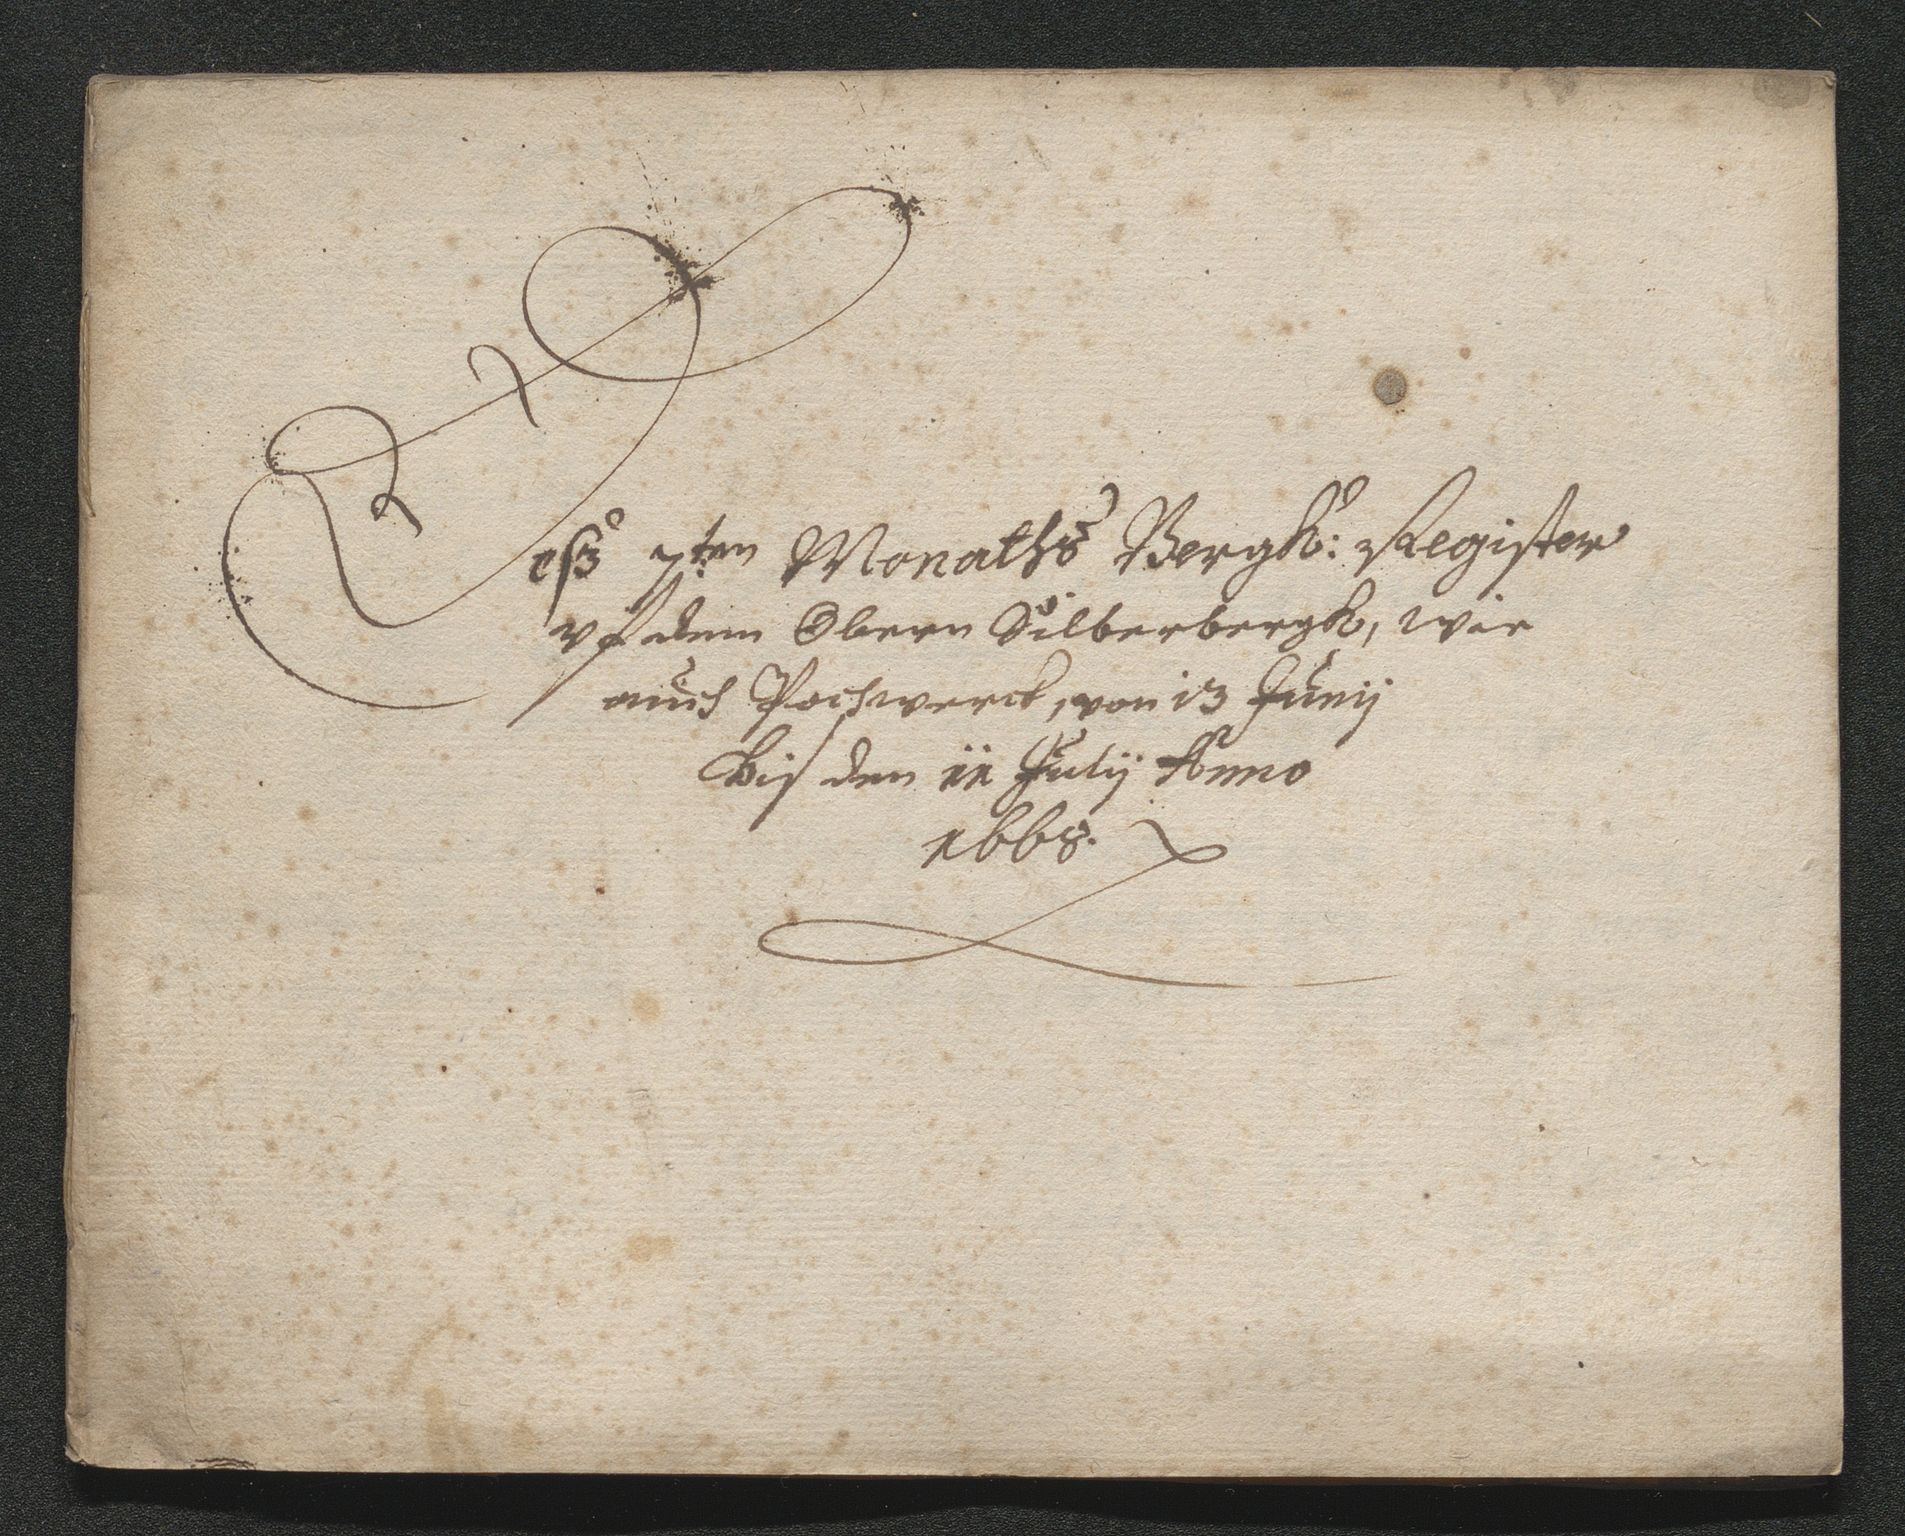 Deß 7ten Monaths Bergk: Register
vf dem Obern Silbergbergk, wie
auch Pochwerck, von 13 Junij
biß den 11 Julij Anno
1668.